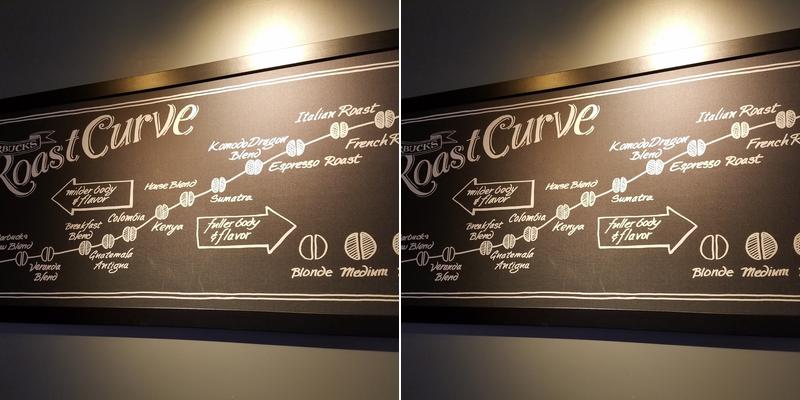 Roast Curve
Italian Roast
French
Komodo Dragon
Blend
Espresso Roast
House Blend
Sumatra
milder body
& flavor
Colombia
Kenya
Breakfast
Blend
fuller body
& flavor
Guatemala
Antigua
Blend
Veranda
Blend
Blonde
Medium
Roast Curve
Italian Roast
French
Komodo Dragon
Blend
Espresso Roast
House Blend
Sumatra
milder body
& flavor
Colombia
Kenya
Breakfast
Blend
fuller body
& flavor
Guatemala
Antigua
Blend
Veranda
Blend
Blonde
Medium